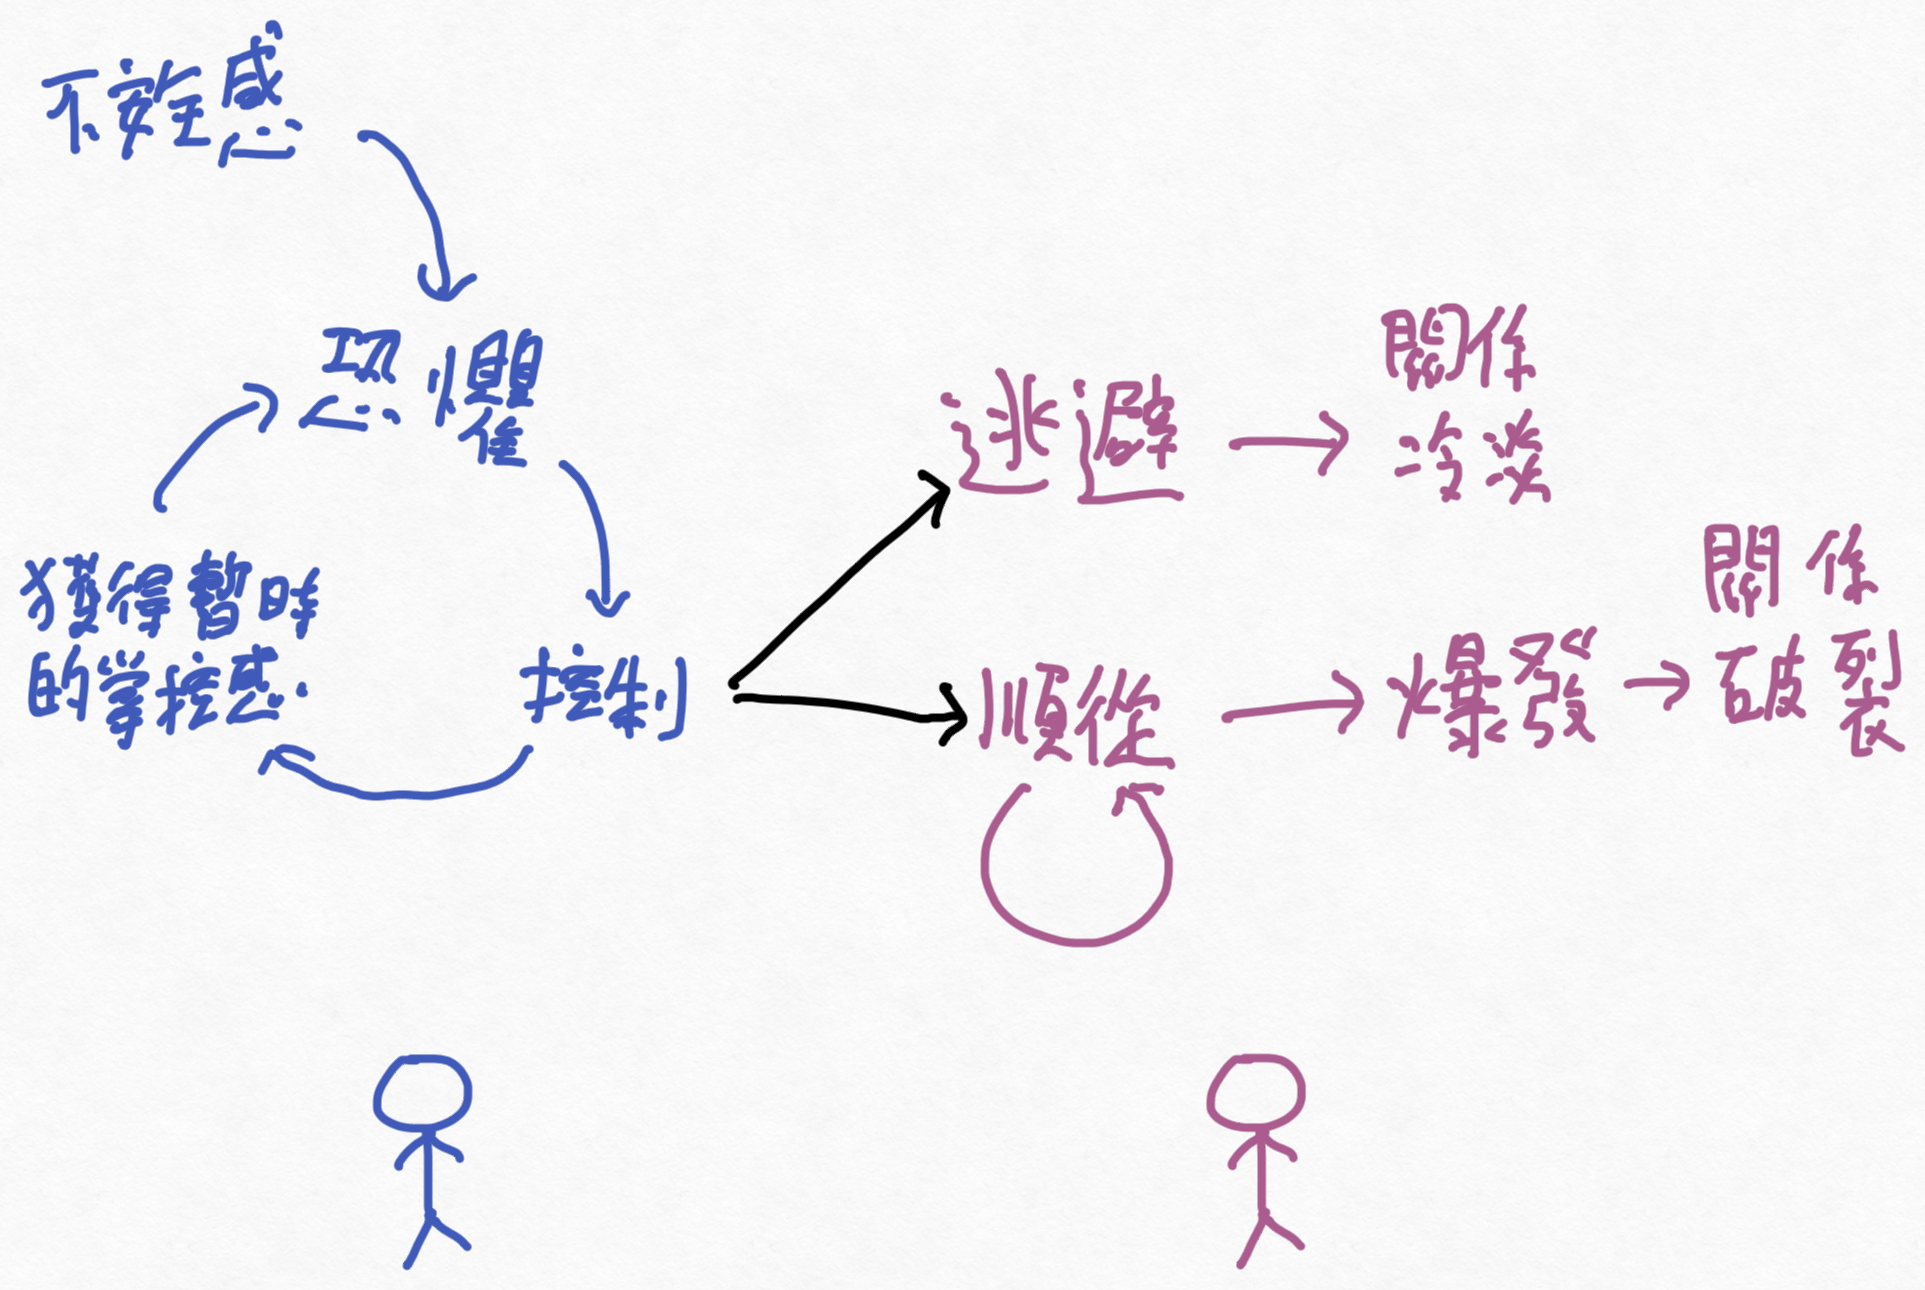 不安全感
恐懼
獲得暫時
的掌控感
控制
逃避
關係
冷淡
順從
爆發
關係
破裂